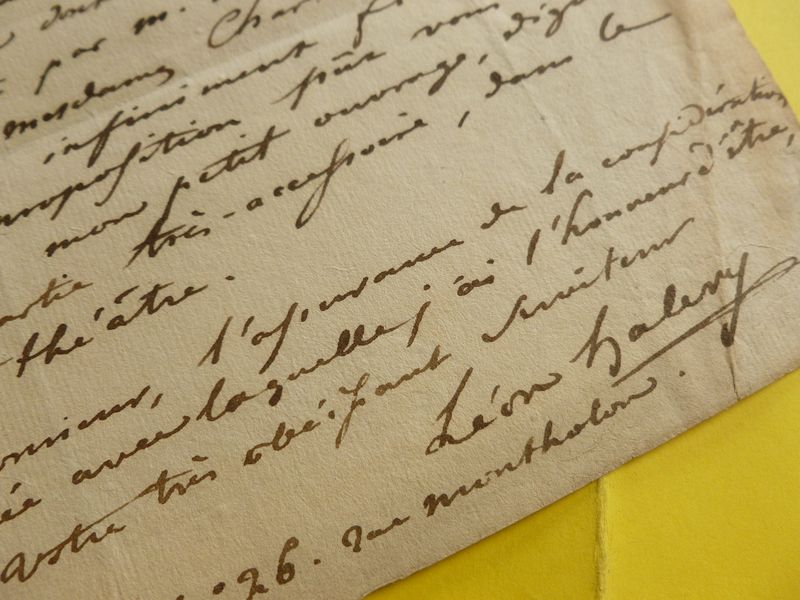 par m.
mesdames Char
infiniment
proposition pût vous
mon petit ouvrage, dig
artie très-accessoire, dans le
théâtre.
onsieur, l'assurance de la considération
ée avec laquelle j'ai l'honneur d'être,
Votre très obéissant serviteur
Léon halevy
26. rue montholon.